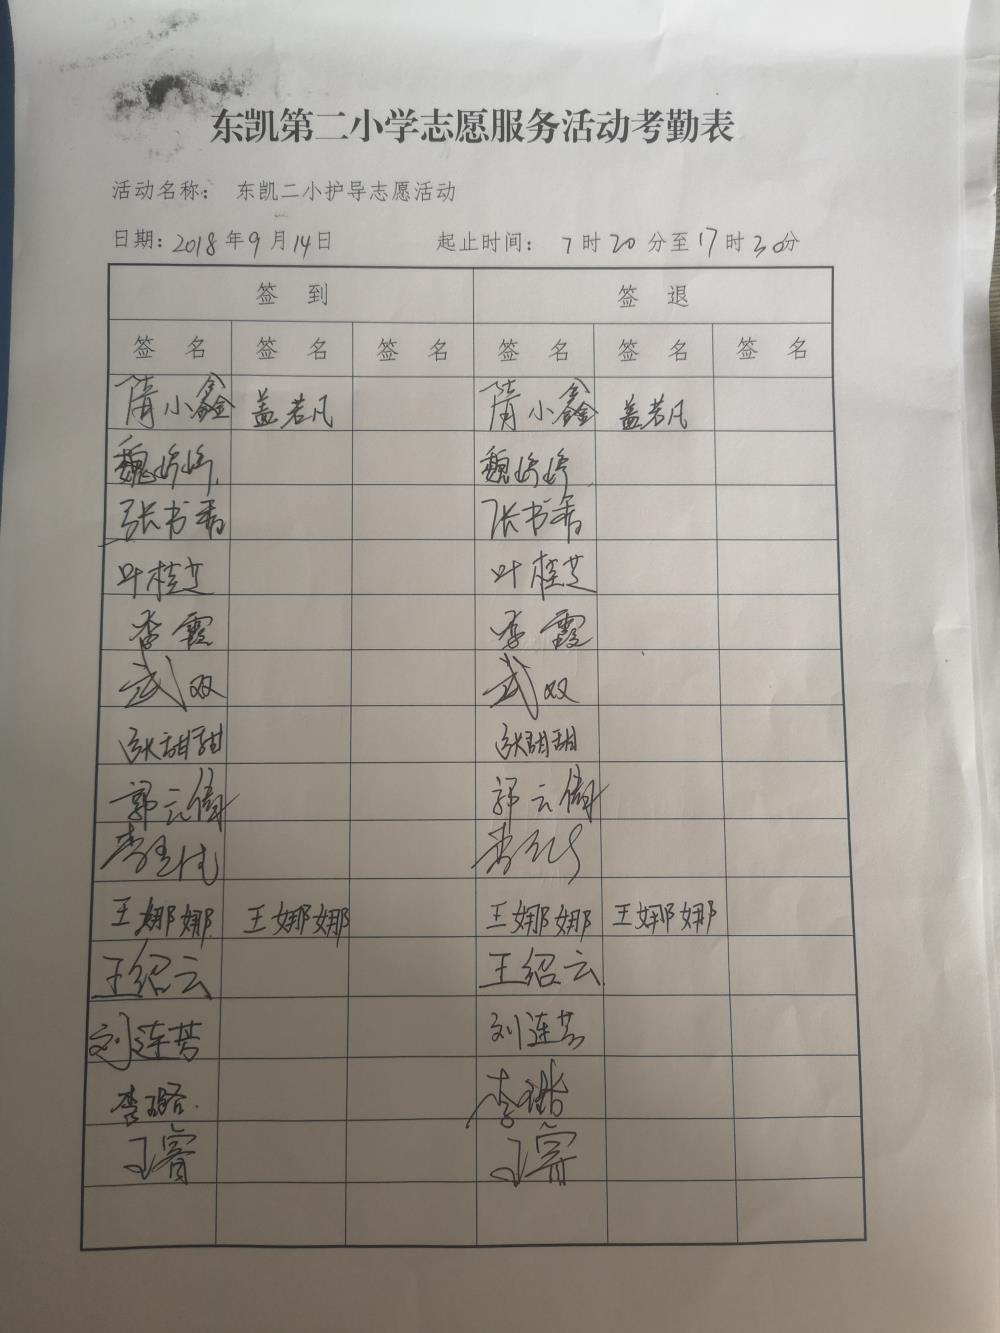 东凯第二小学志愿服务活动考勤表
活动名称： 东凯二小护导志愿活动
日期：2018年9月14日 起止时间：7时20分至17时30分
签 到 签 退
签 名 签 名 签 名 签 名 签 名 签 名
隋小鑫 盖若凡 隋小鑫 盖若凡
魏婷婷 魏婷婷
张书香 张书香
叶桂芝 叶桂芝
李霞 李霞
武双 武双
张甜甜 张甜甜
郭云倩 郭云倩
王娜娜 王娜娜 王娜娜 王娜娜
王绍云 王绍云
刘连芳 刘连芳
李璐 李璐
王睿 王睿